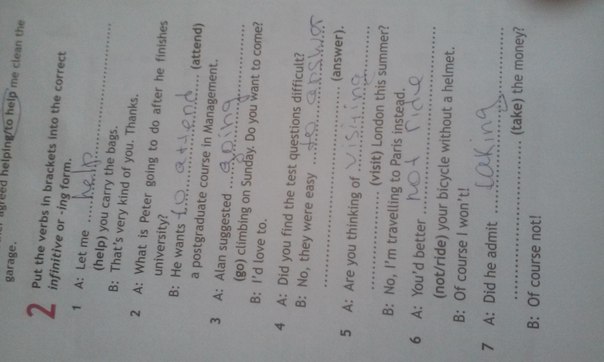 agreed helping/to help me clean the
garage.
2 Put the verbs in brackets into the correct
infinitive or -ing form.
1 A: Let me ....help....
(help) you carry the bags.
B: That's very kind of you. Thanks.
2 A: What is Peter going to do after he finishes
university?
B: He wants to attend (attend)
a postgraduate course in Management.
3 A: Alan suggested ....going....
(go) climbing on Sunday. Do you want to come?
B: I'd love to.
4 A: Did you find the test questions difficult?
B: No, they were easy ....to answer
.... (answer).
5 A: Are you thinking of visiting
.... (visit) London this summer?
B: No, I'm travelling to Paris instead.
6 A: You'd better not ride
(not/ride) your bicycle without a helmet.
B: Of course I won't!
7 A: Did he admit taking
.... (take) the money?
B: Of course not!